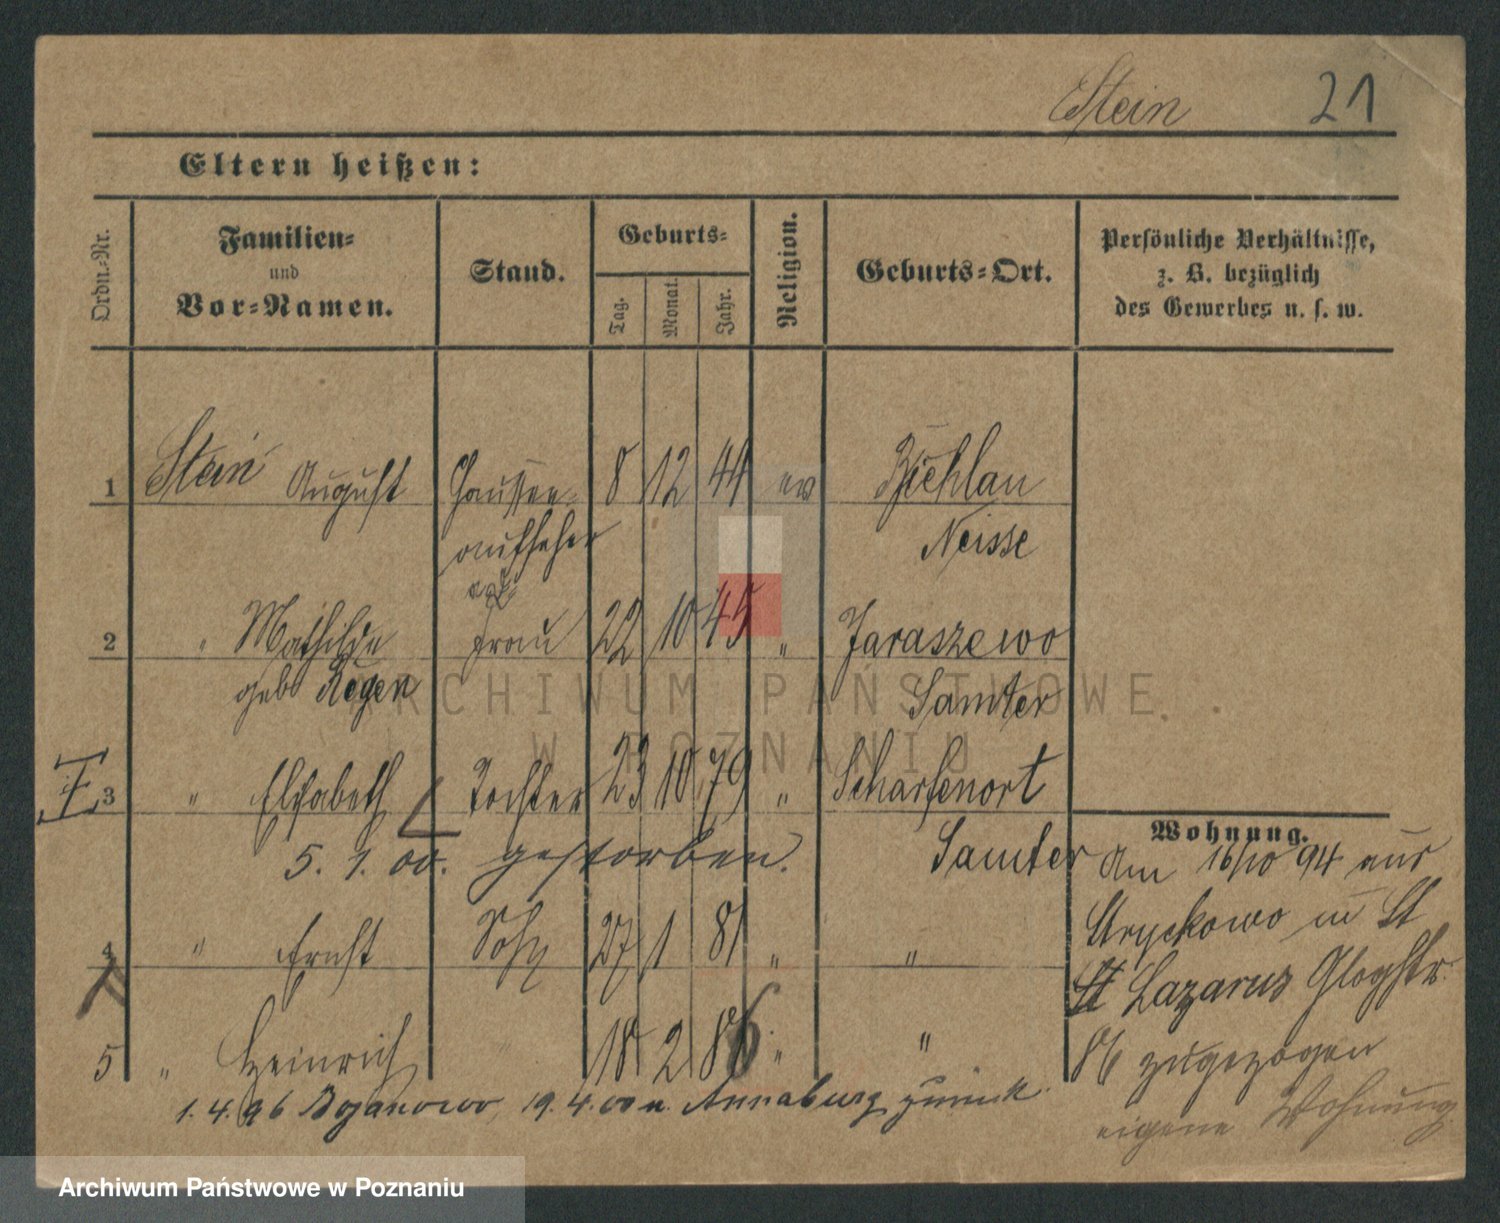 Stein 21
Eltern heißen:
Ordn.-Nr. Familien- und Vor-Namen. Stand. Geburts- Tag. Monat. Jahr. Religion. Geburts-Ort. Persönliche Verhältnisse, z. B. bezüglich des Gewerbes u. s. w.
1 Stein August Chaussee- 8 12 44 ev
aufseher Neisse
2 " Mathilde Frau 22 10 45 " Jaraszewo
geb Regen Samter
3 " Elisabeth Tochter 23 10 79 " Scharfenort
Samter
5. 1. 00. gestorben.
4 " Ernst Sohn 27 1 81 " "
5 " Heinrich 18 2 86 " "
1. 4. 96 Bojanowo, 19. 4. 00 v. Annaburg zurück.
Wohnung.
Am 16/10 94 aus
Stryckowo in St
St Lazarus Glogstr.
86 zugezogen
eigene Wohnung
ARCHIWUM PAŃSTWOWE
W POZNANIU
Archiwum Państwowe w Poznaniu